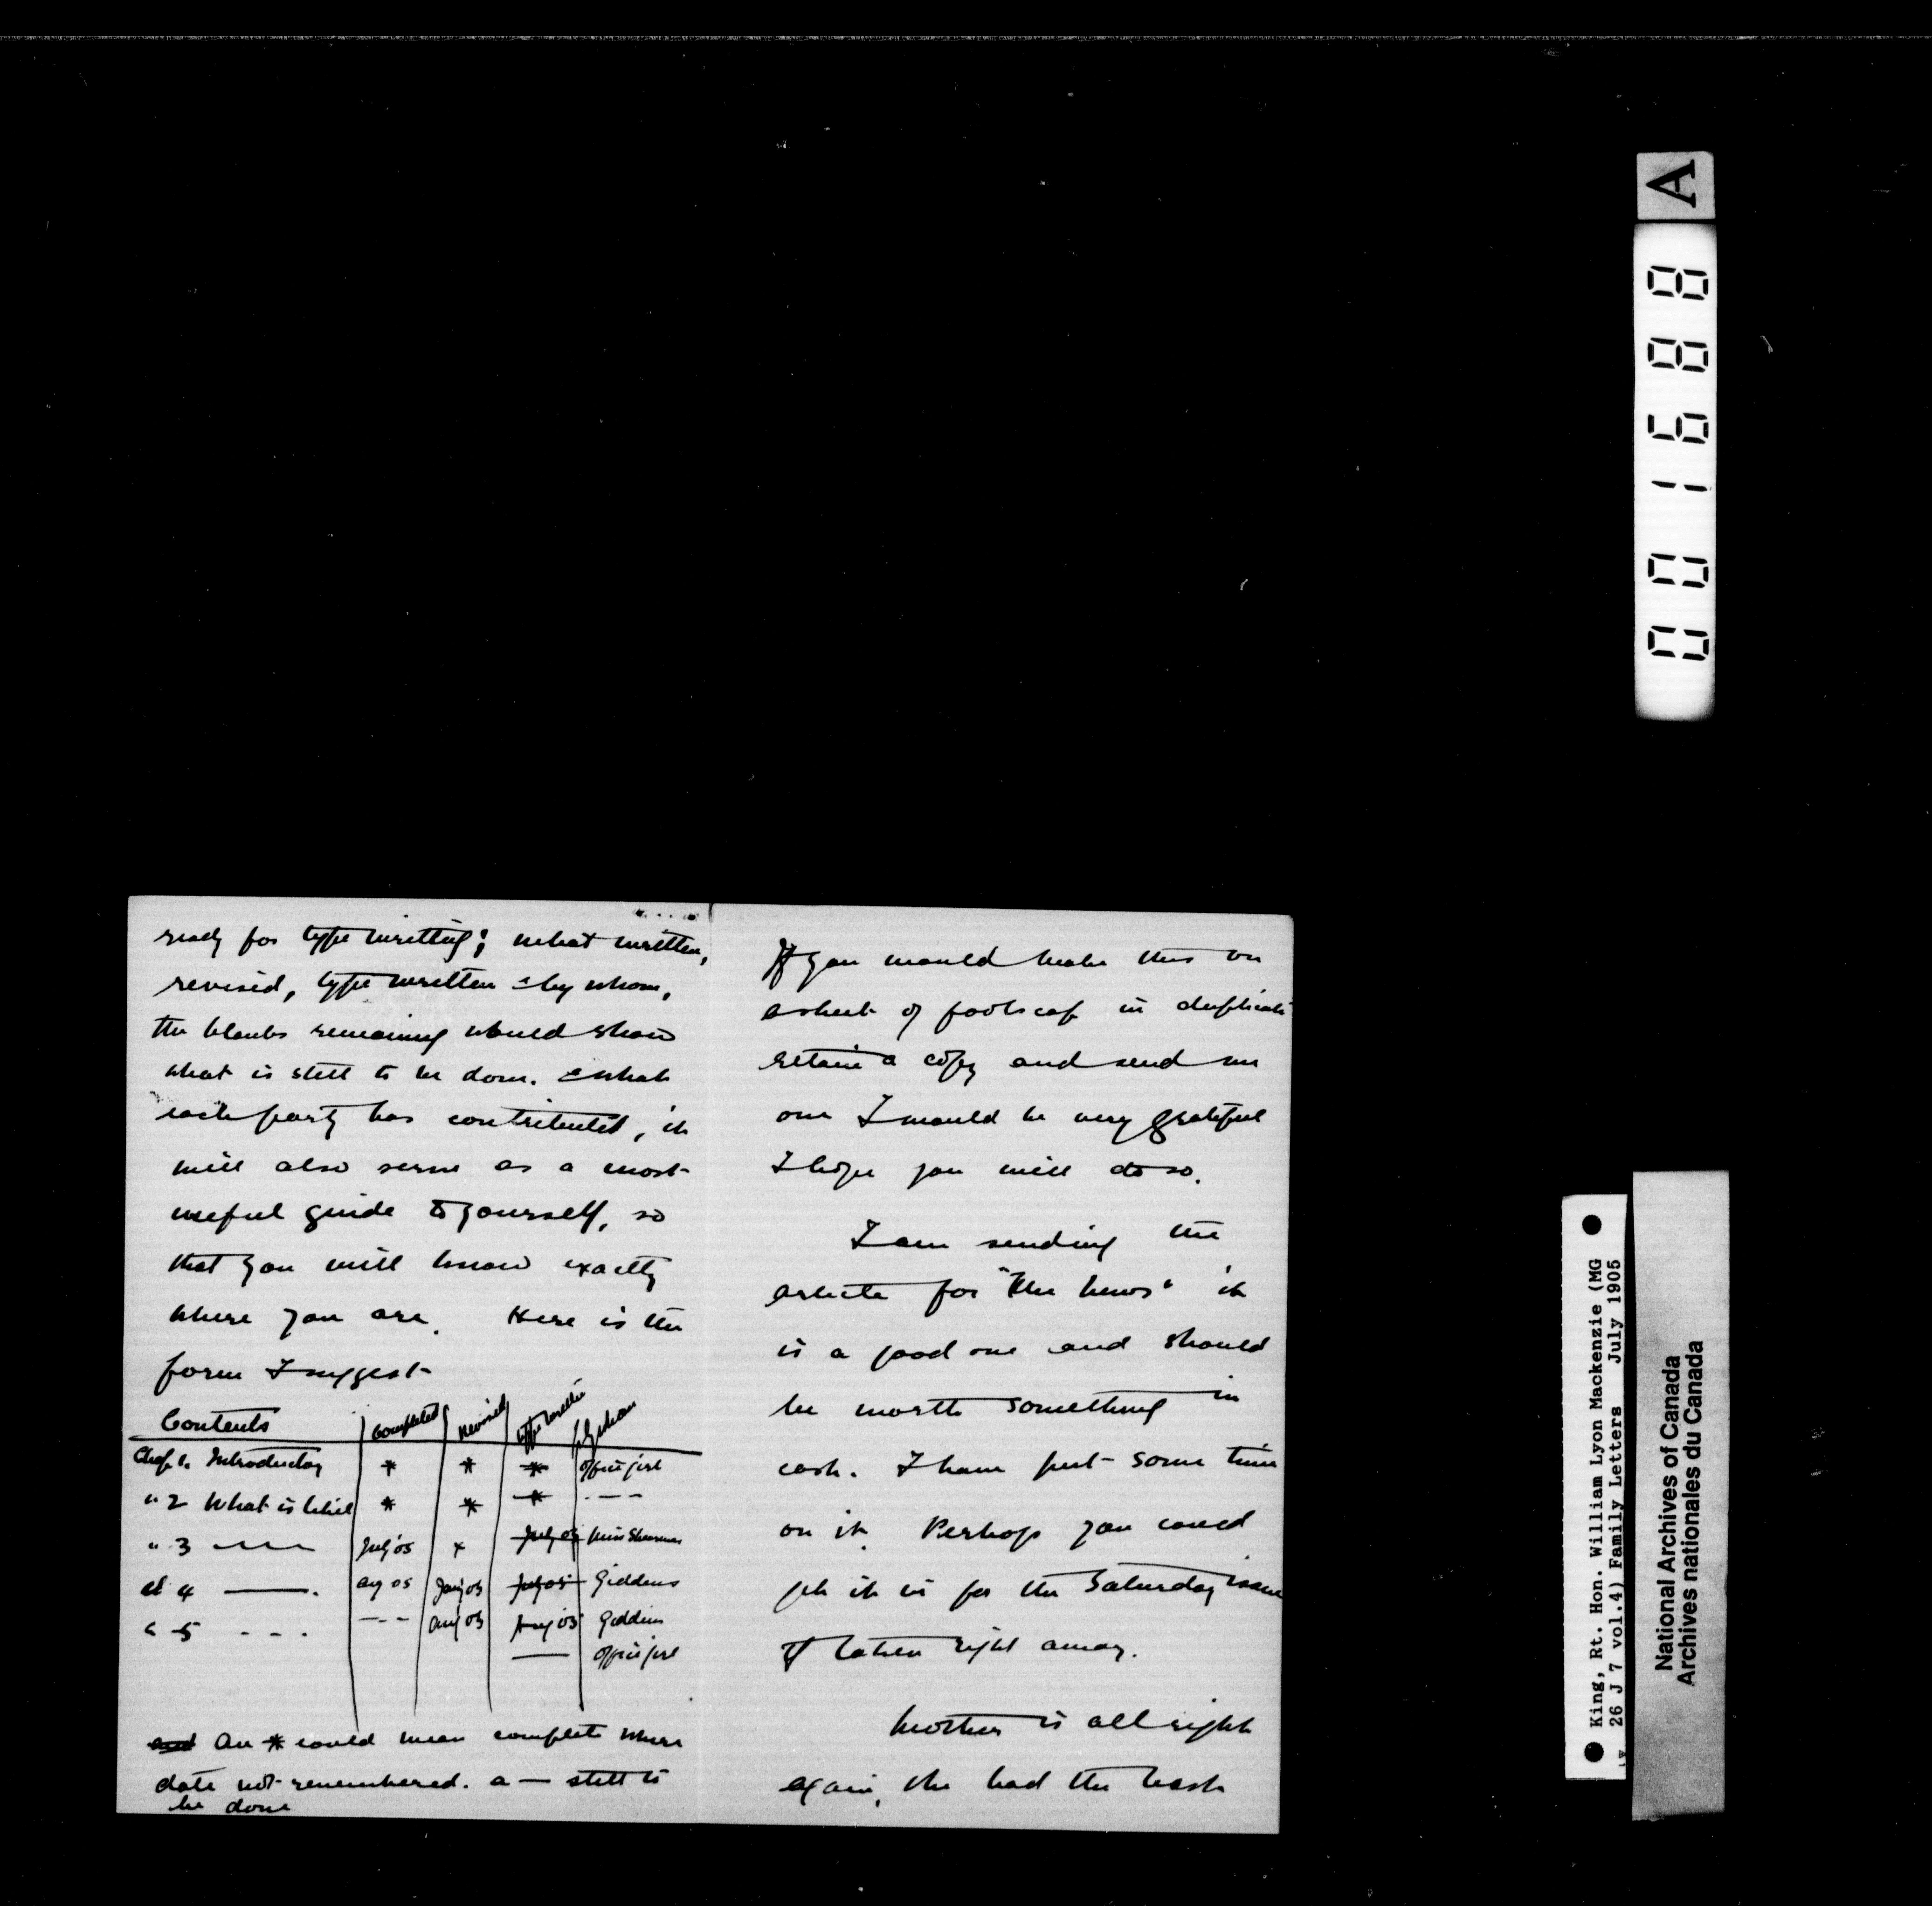 ready for type writing; what written,
revised, type written & by whom,
the blanks remaining would show
what is still to be done. & what
each party has contributed, it
will also serve as a most
useful guide to yourself, so
that you will know exactly
where you are. Here is the
form I suggest
Contents | Completed | Revised | type written | by whom
Chap 1. Introductory | * | * | * | office girl
" 2 What is libel | * | * | * | - - -
" 3 | July '05 | * | July 05 | Miss
" 4 —— . | Aug 05 | Aug 05 | July 05 | Giddens
" 5 - - - | - - - | Aug 05 | Aug '05 | Giddens
—— office girl
and An * could mean complete where
date not remembered. a — still to
be done
If you would make this on
a sheet of foolscap in duplicate
retain a copy and send me
one I would be very grateful
I hope you will do so.
I am sending the
article for "The News" it
is a good one and should
be worth something in
cash. I have put some time
on it. Perhaps you could
get it in for the Saturday issue
if taken right away.
Mother is all right
again, she had the
A
001688
King, Rt. Hon. William Lyon Mackenzie (MG
26 J 7 vol.4) Family Letters July 1905
National Archives of Canada
Archives nationales du Canada